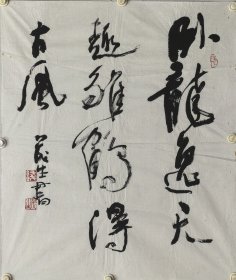 卧龍逸天
趣雛鶴得
古風